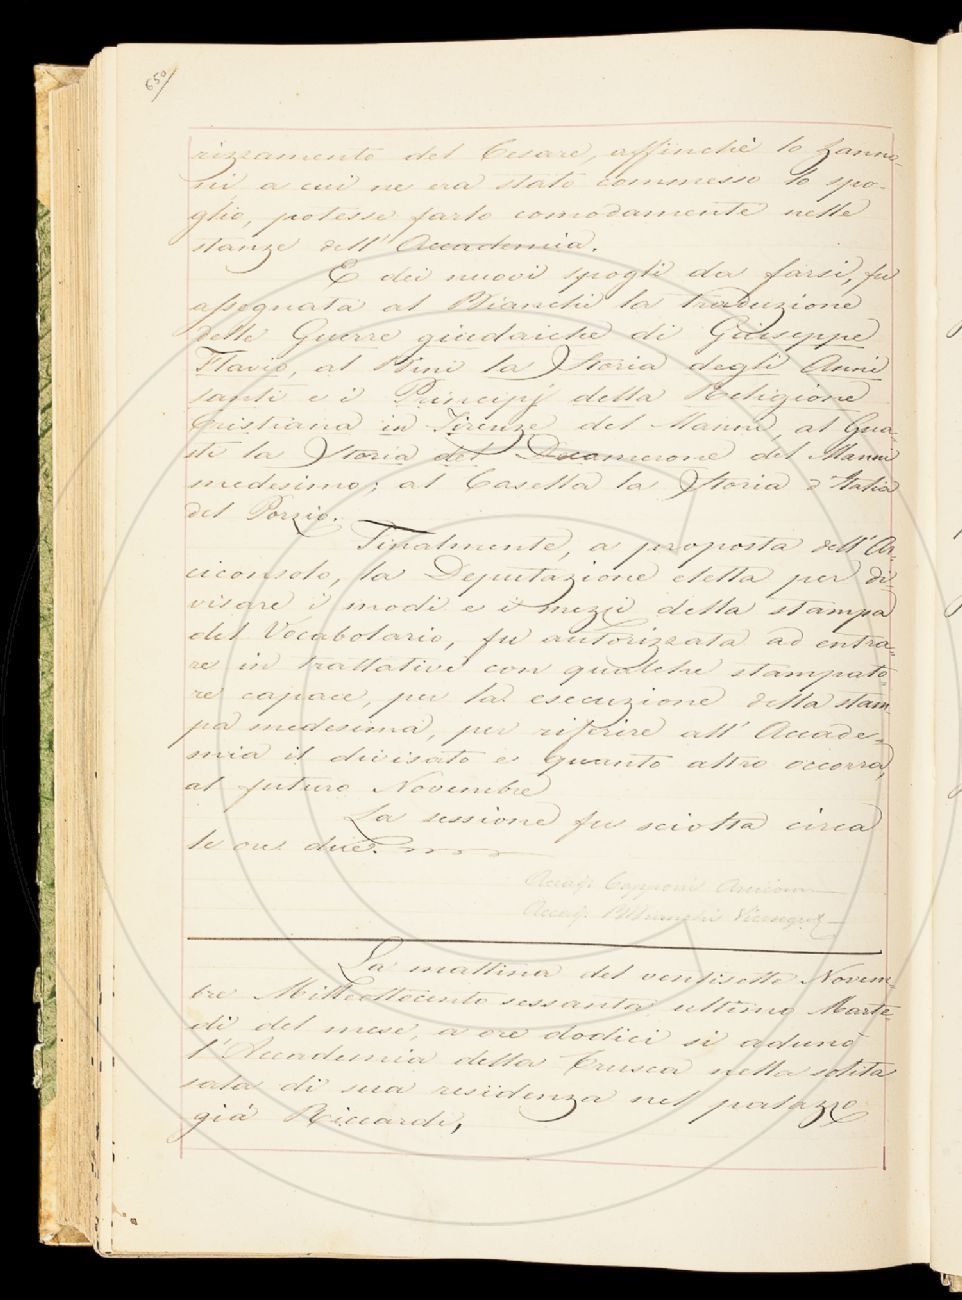 650
rizzamento del Cesare, affinchè lo Zanno-
ni, a cui ne era stato commesso lo spo-
glio, potesse farlo comodamente nelle
stanze dell'Accademia.
E dei nuovi spogli da farsi, fu
assegnata al Bianchi la traduzione
delle Guerre giudaiche di Giuseppe
Flavio, al Bini la Storia degli Anni
santi e i Principj della Religione
Cristiana in Firenze del Manni, al Gua-
sti la Storia del Decamerone del Manni
medesimo; al Casella la Storia d'Italia
del Porzio.
Finalmente, a proposta dell'Ar-
ciconsolo, la Deputazione eletta per di-
visare i modi e i mezzi della stampa
del Vocabolario, fu autorizzata ad entra-
re in trattative con qualche stampato-
re capace, per la esecuzione della stam-
pa medesima, per riferire all'Accade-
mia il divisato e quanto altro occorra,
al futuro Novembre
La sessione fu sciolta circa
le ore due.
Capponi
Bianchi
La mattina del ventisette Novem-
bre Milleottocento sessanta ultimo Marte-
dì del mese, a ore dodici si adunò
l'Accademia della Crusca nella solita
sala di sua residenza nel palazzo
già Riccardi,